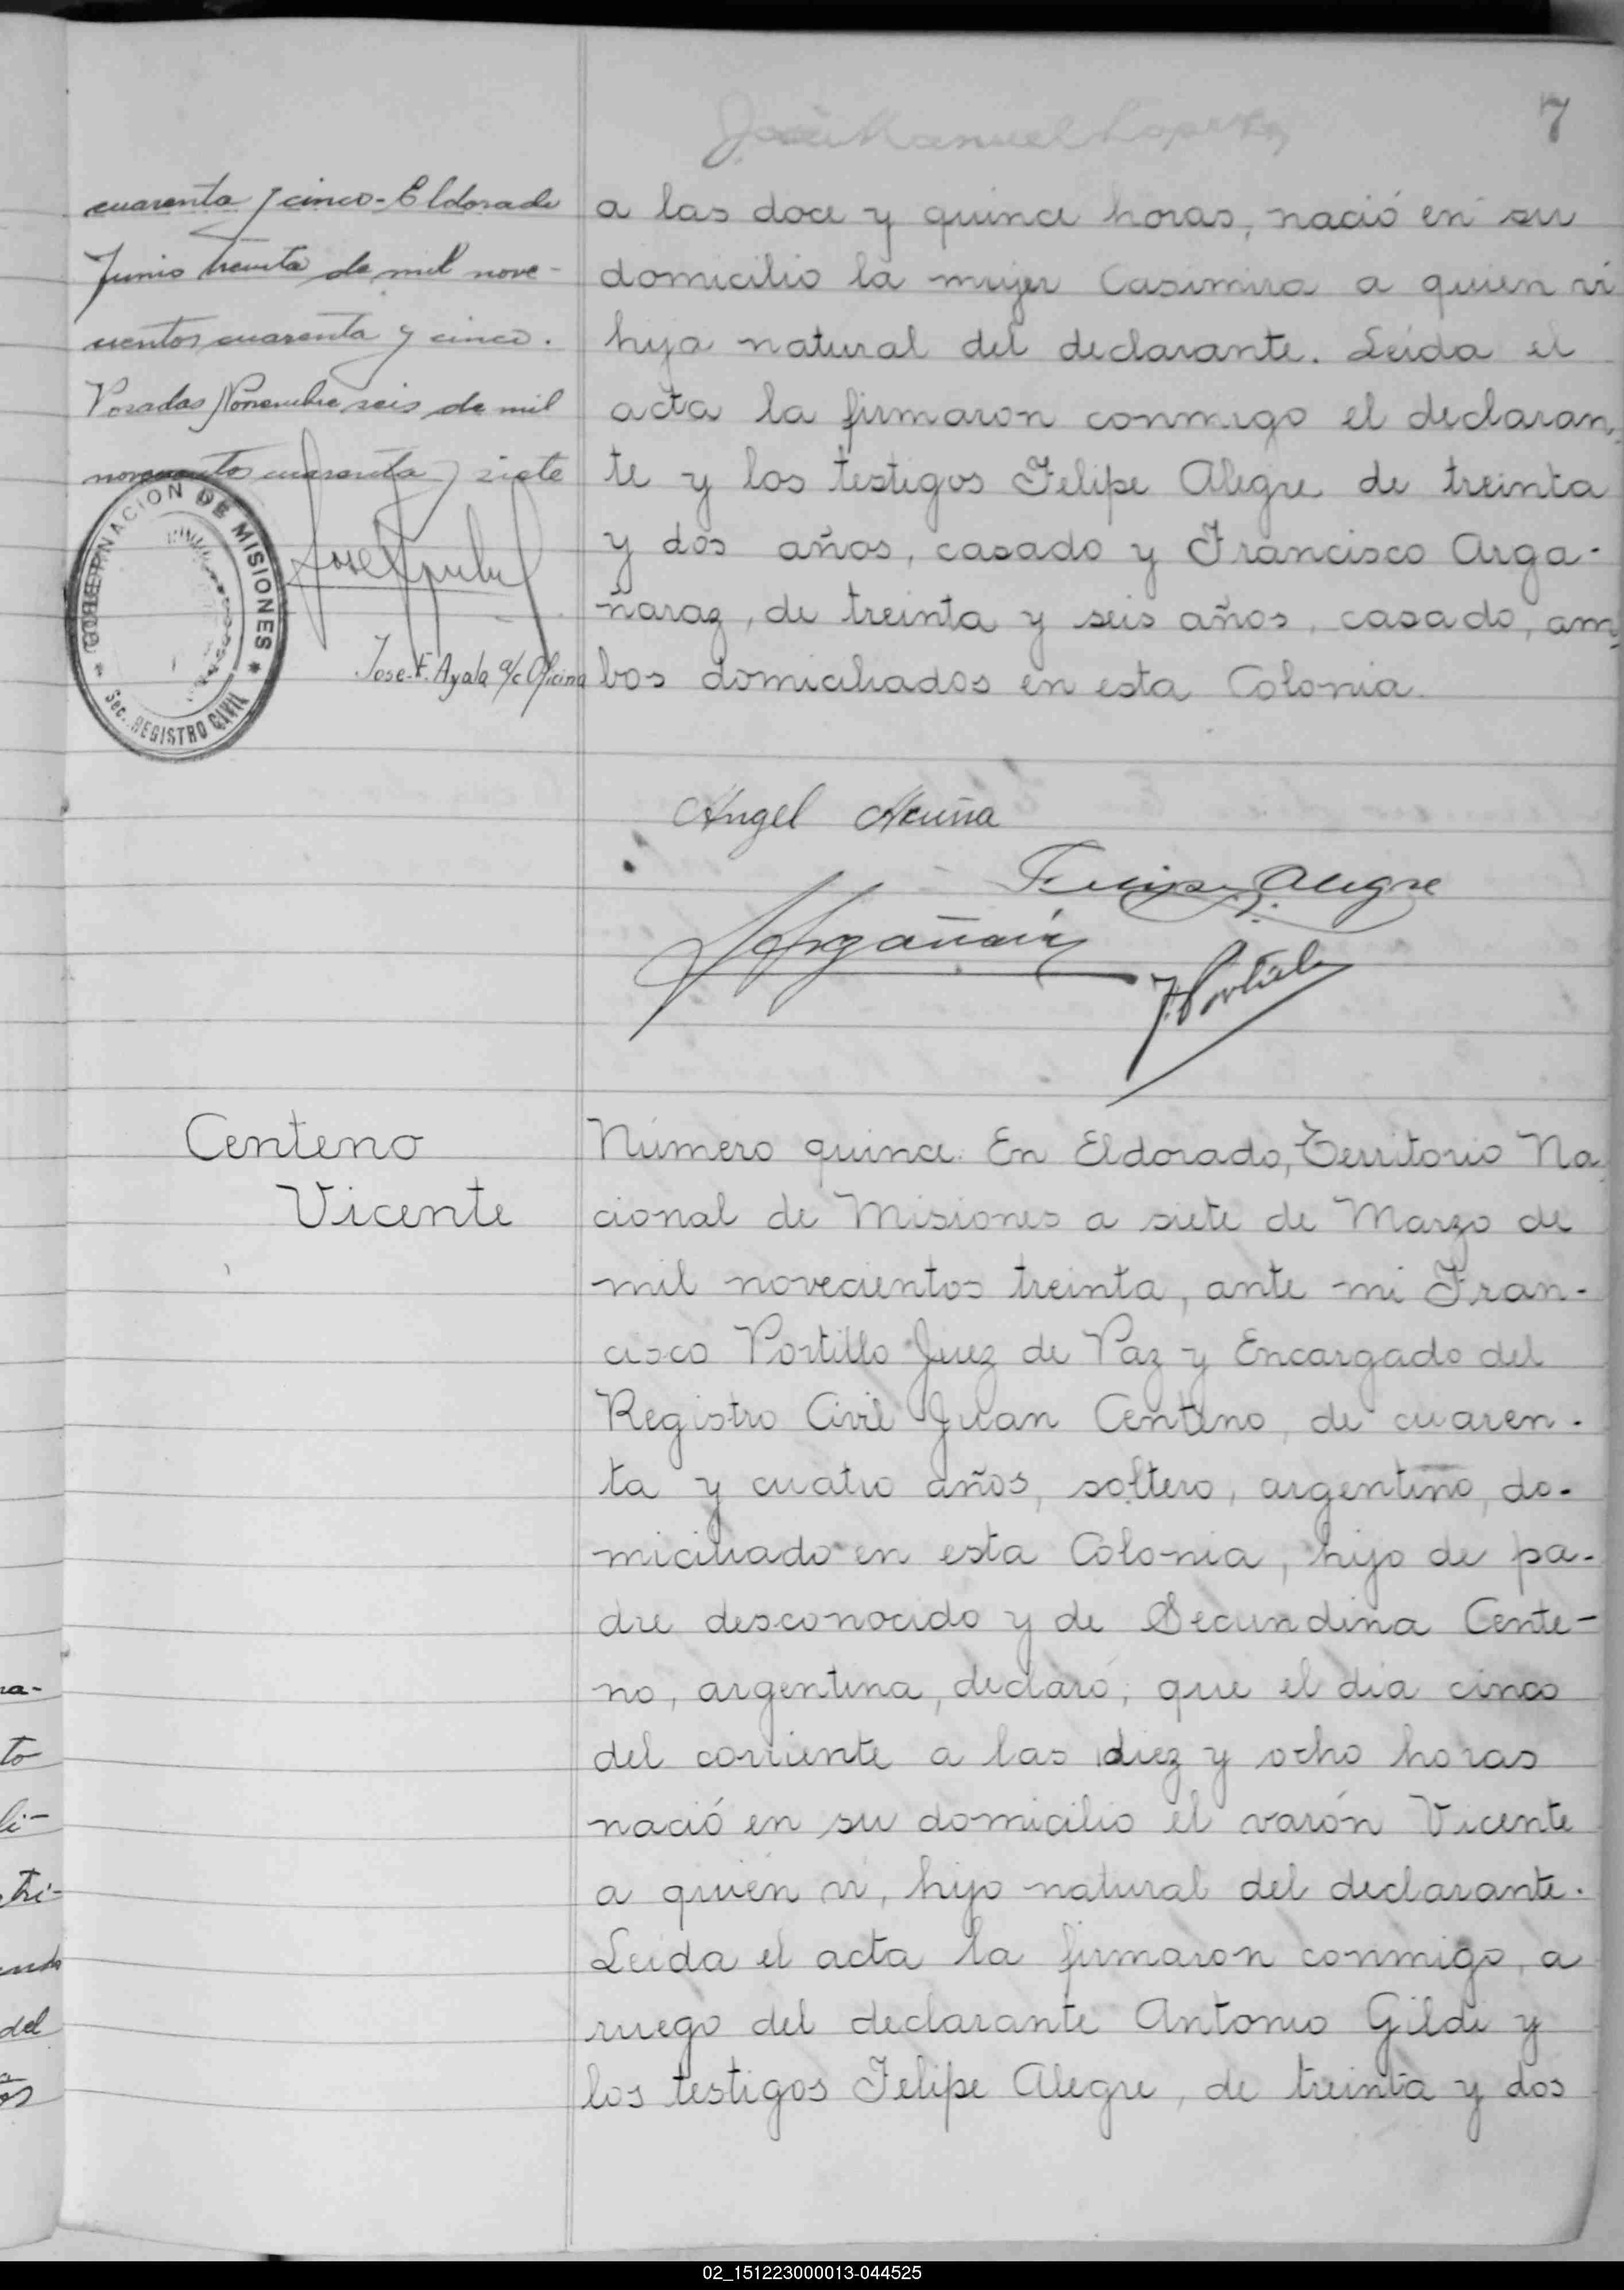 7
José Manuel Lopez
cuarenta y cinco - Eldorado
Junio treinta de mil nove-
cientos cuarenta y cinco.
Posadas Noviembre seis de mil
novecientos cuarenta y siete
GOBERNACION DE MISIONES
Sec. REGISTRO CIVIL
Jose F. Ayala a/c Oficina
a las doce y quince horas, nació en su
domicilio la mujer Casimira a quien vi
hija natural del declarante. Leida el
acta la firmaron conmigo el declaran,
te y los testigos Felipe Alegre de treinta
y dos años, casado y Francisco Arga-
ñaraz, de treinta y seis años, casado, am,
bos domiciliados en esta Colonia.
Angel Acuña
Felipe Alegre
Argañaráz
F. Portillo
Centeno
Vicente
Número quince. En Eldorado, Territorio Na
cional de Misiones a siete de Marzo de
mil novecientos treinta, ante mi Fran-
cisco Portillo Juez de Paz y Encargado del
Registro Civil Juan Centeno, de cuaren-
ta y cuatro años, soltero, argentino, do-
miciliado en esta Colonia, hijo de pa-
dre desconocido y de Secundina Cente-
no, argentina, declaró; que el dia cinco
del corriente a las diez y ocho horas
nació en su domicilio el varón Vicente
a quien vi, hijo natural del declarante.
Leida el acta la firmaron conmigo, a
ruego del declarante Antonio Gildi y
los testigos Felipe Alegre, de treinta y dos
ra-
to
li-
tri-
del
02_151223000013-044525